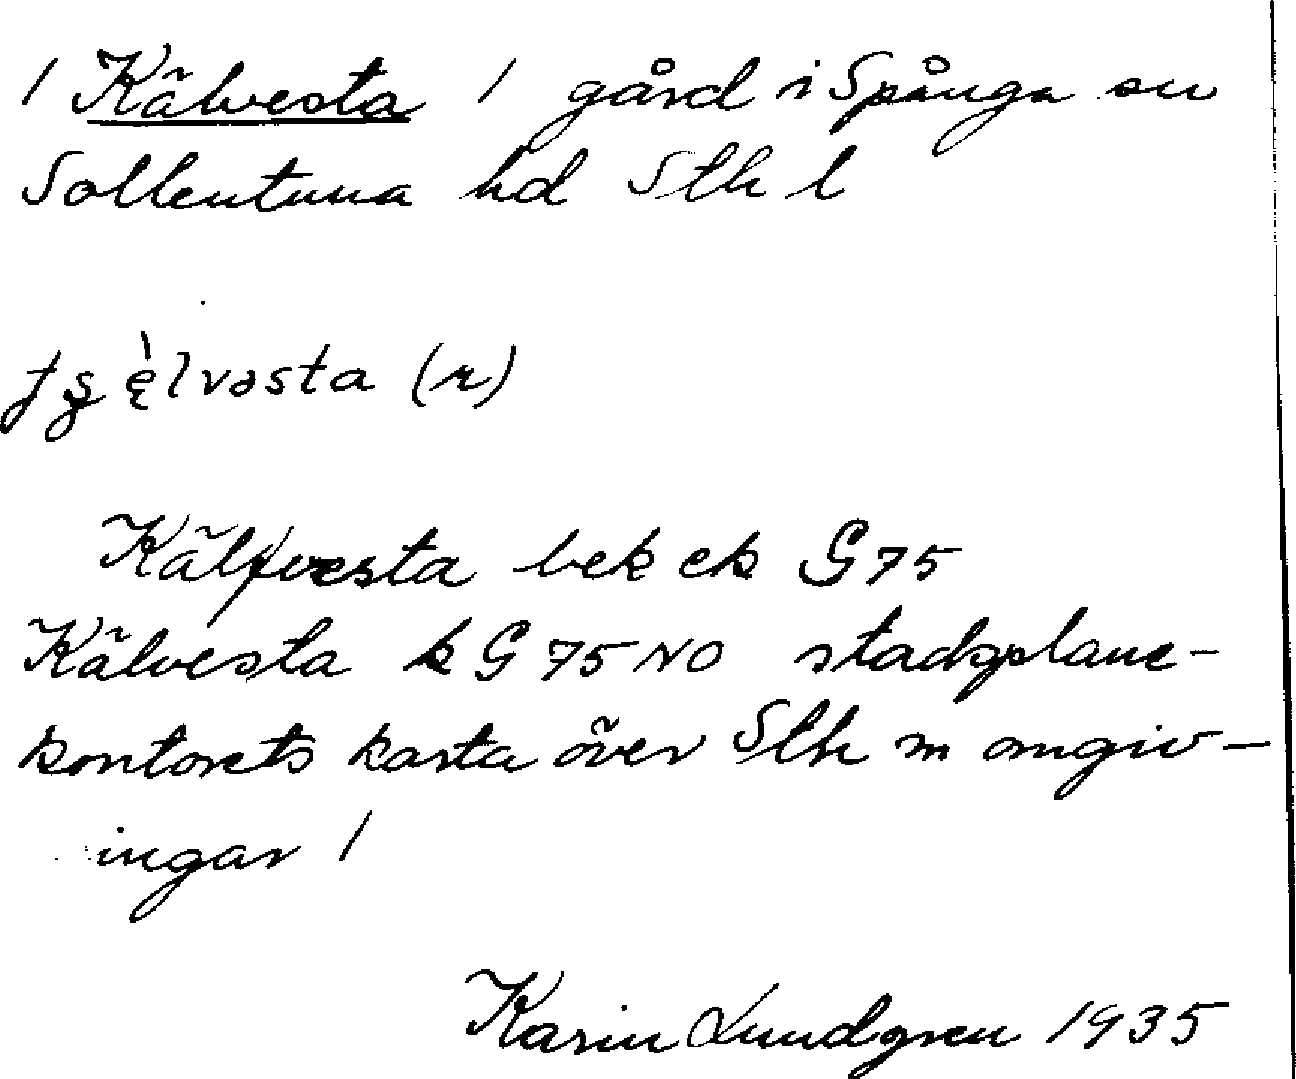 / Kälvesta / gård i Spånga sn
Sollentuna hd Sthl
(r)
Kälfvesta bek ek G 75
Kälvesta k G 75 NO stadsplane-
kontorets karta över Sthm omgiv-
ingar /
Karin Lundgren 1935